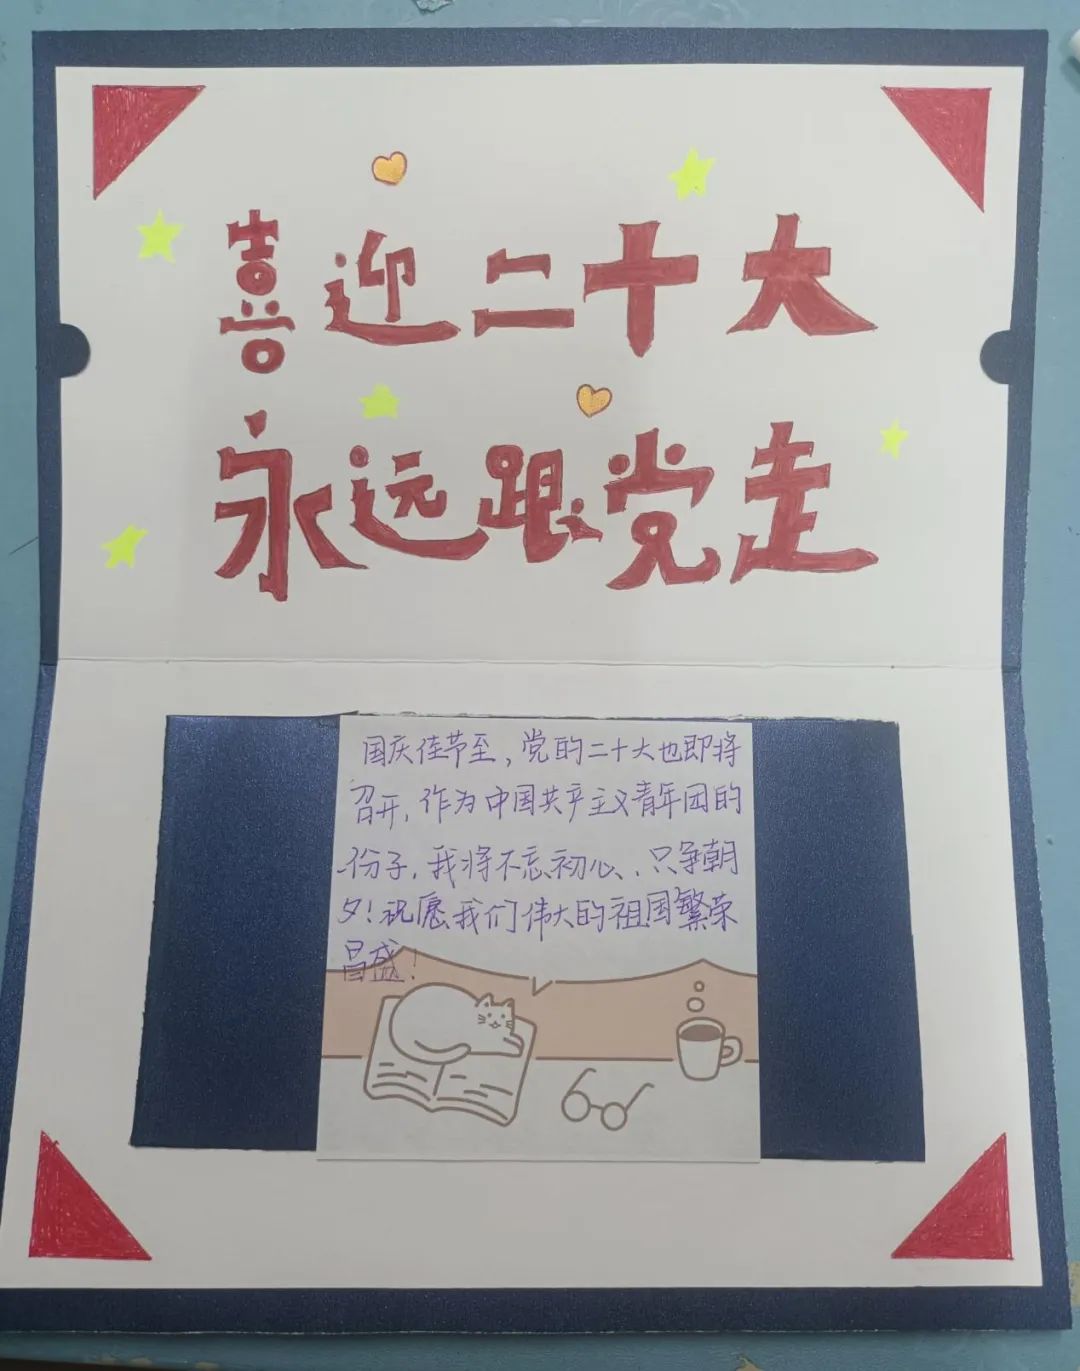 喜迎二十大
永远跟党走
国庆佳节至，党的二十大也即将
召开，作为中国共产主义青年团的
一份子，我将不忘初心，只争朝
夕！祝愿我们伟大的祖国繁荣
昌盛！